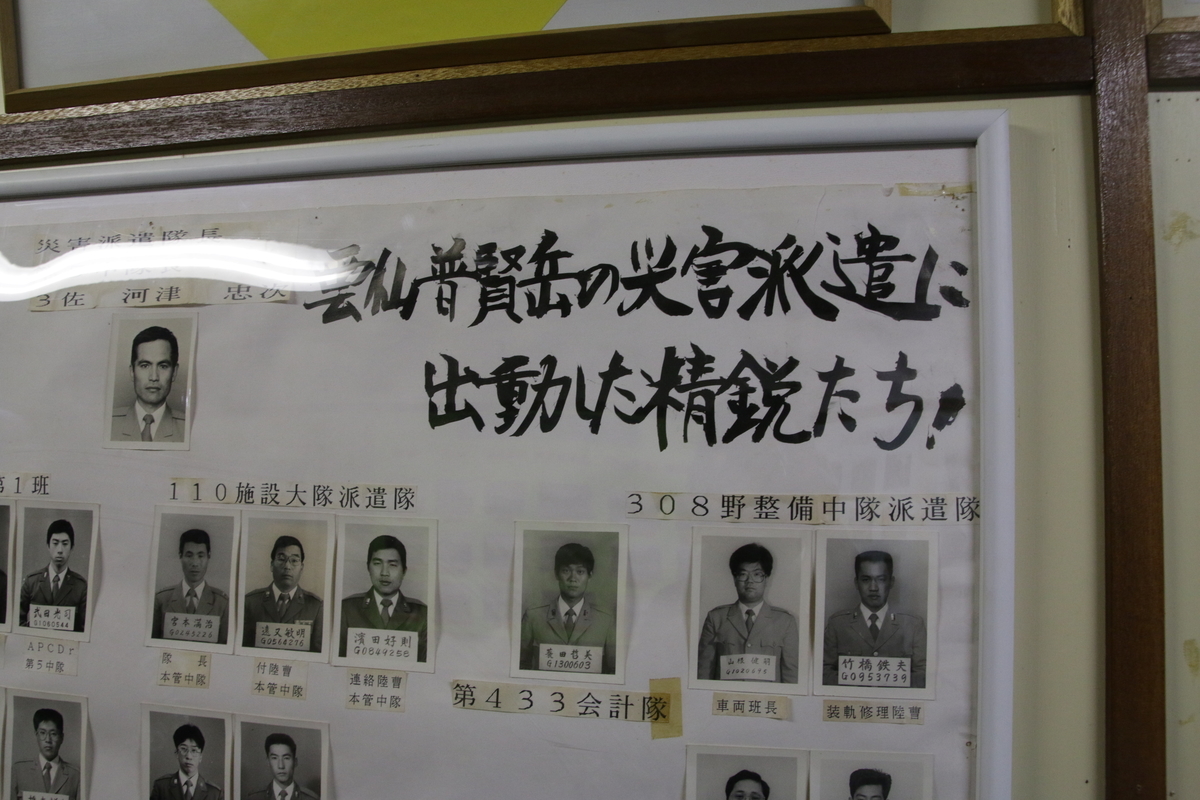 災害派遣隊長
3佐 河津 忠次
雲仙普賢岳の災害派遣に
出動した精鋭たち!
第1班
110施設大隊派遣隊
308野整備中隊派遣隊
武田光司
G1060544
APCDr
第5中隊
倉本満治
G0249226
隊長
本管中隊
逸又敏明
G0564276
付陸曹
本管中隊
濱田好則
G0549255
連絡陸曹
本管中隊
G1300603
第433会計隊
車両班長
竹橋鉄夫
G0953739
装軌修理陸曹